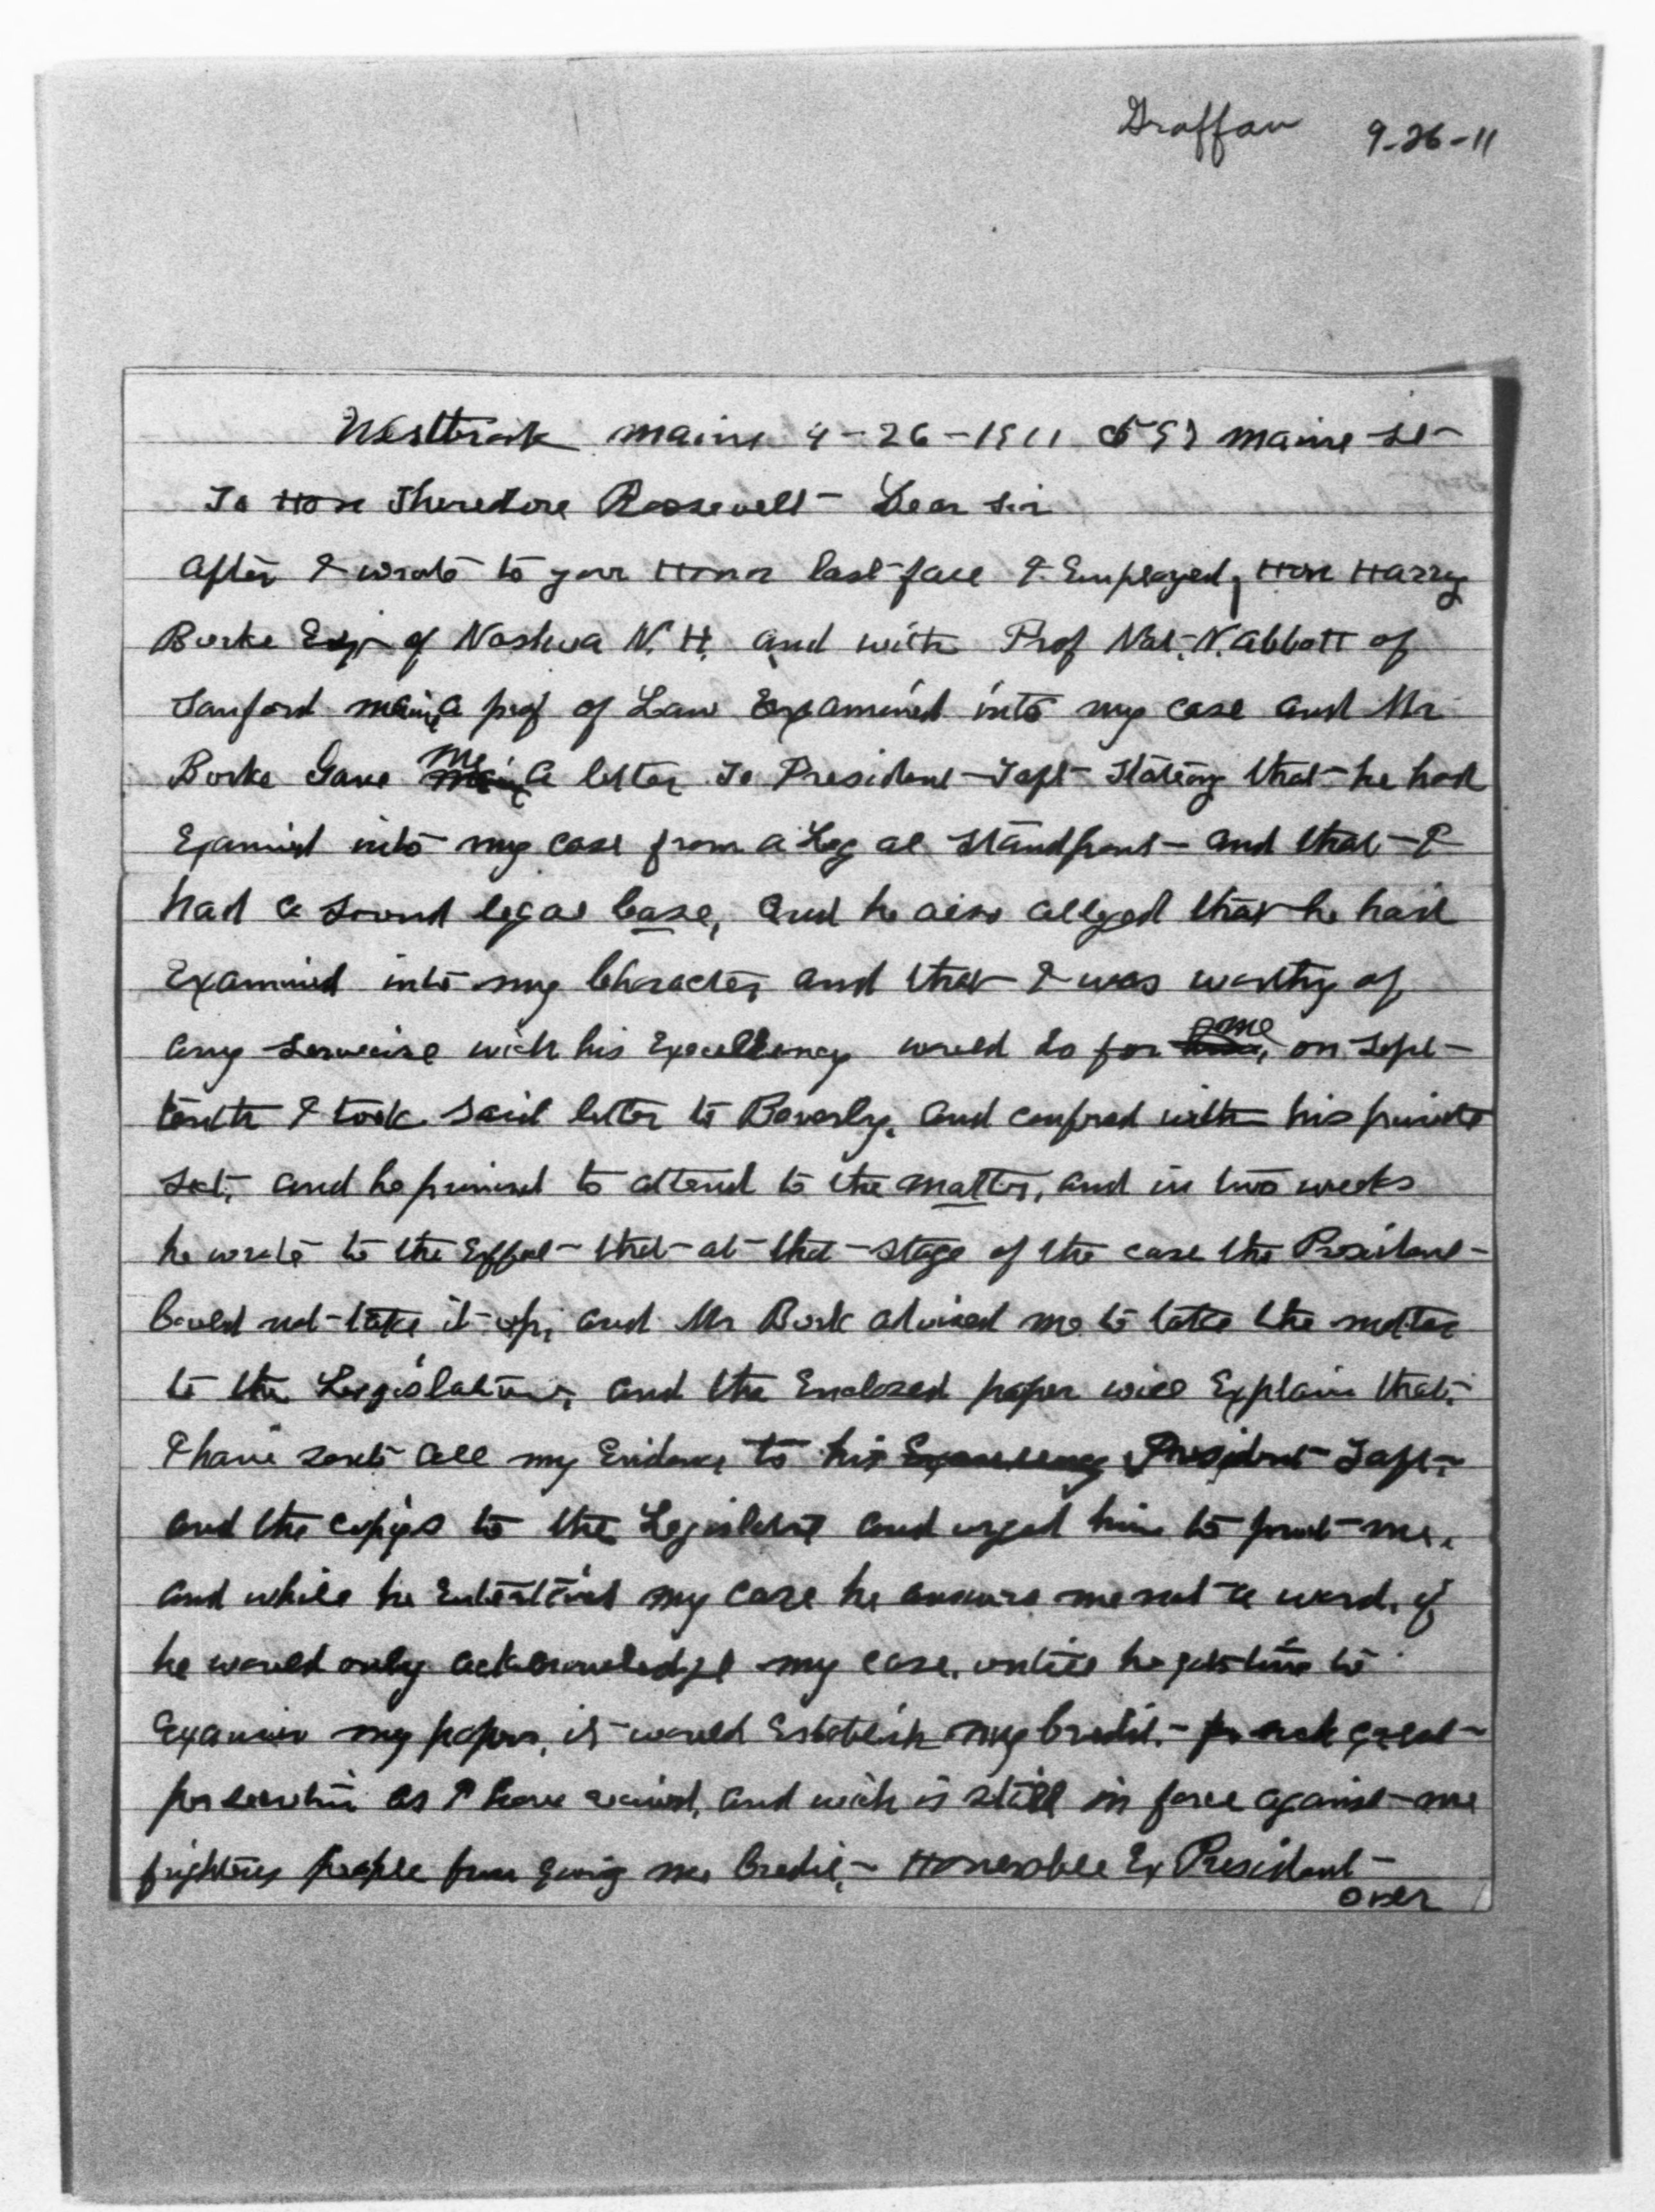 Graffam 9-26-11
Westbrook Maine 4-26-1911 Maine St
To Hon Theredore Roosevelt Dear Sir
After I wrote to your Honor last fall I Employed, Hon Harry
Burke Esq of Nashua N. H. and with Prof Nat. N. Abbott of
Sanford Maine a prof of Law Examined into my case and Mr
Borke Gave me a letter To President Taft Stating that he had
Examied into my case from a Leg al Standpont and that I
had a Sound legal Case, and he also alleged that he had
Examined into my Character, and that I was worthy of
any Serveice wich his Excellency would do for me, on Sept
tenth I took Said letter to Beverly, and confred with his private
Sect, and he primised to attend to the matter, and in two weeks
he wrote to the Effect that at that stage of the case the President
Could not take it up, and Mr Bork advised me to take the matter
to the Legislature, and the Enclosed paper will Explain that.
I have sent all my Evidence to his Excellency President Taft
and the copies to the Legislature and urged him to me,
and while he my case he answers me not a word, if
he would only acknowledge my case, untill he gets time to
Examine my papers, it would Establish my Credit, great
as I have recived, and wich is still in force against me
frightens people from giving me Credit, Honerable Ex President
over